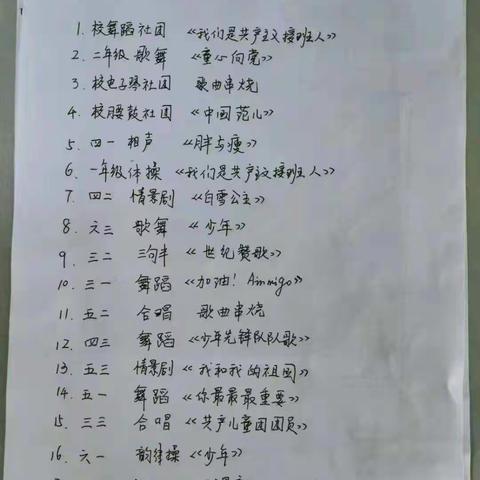 1. 校舞蹈社团 《我们是共产主义接班人》
2. 二年级 歌舞 《童心向党》
3. 校电子琴社团 歌曲串烧
4. 校腰鼓社团 《中国范儿》
5. 四一 相声 《胖与瘦》
6. 一年级体操 《我们是共产主义接班人》
7. 四二 情景剧 《白雪公主》
8. 六三 歌舞 《少年》
9. 三二 三句半 《世纪赞歌》
10. 三一 舞蹈 《加油! Amigo》
11. 五二 合唱 歌曲串烧
12. 四三 舞蹈 《少年先锋队队歌》
13. 五三 情景剧 《我和我的祖国》
14. 五一 舞蹈 《你最最最重要》
15. 三三 合唱 《共产儿童团团员》
16. 六一 韵律操 《少年》